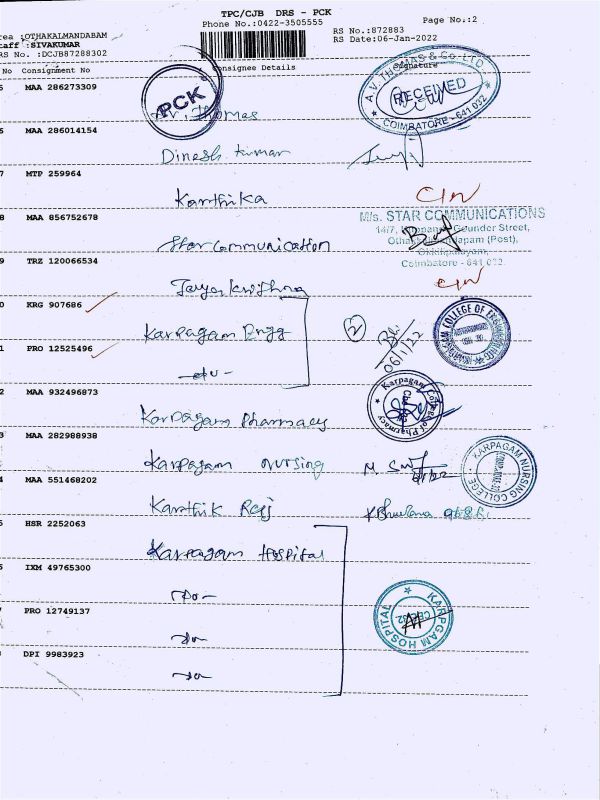 TPC/CJB DRS - PCK
Phone No.:0422-3505555
Page No.:2
rea :OTHAKALMANDABAM
RS No.:872883
taff :SIVAKUMAR
RS Date:06-Jan-2022
RS No. :DCJB87288302
No Consignment No
Consignee Details
Signature
MAA 286273309
PCK
A.V. Thomas
A.V. THOMAS & Co. LTD.
RECEIVED
COIMBATORE - 641 032
MAA 286014154
Dinesh kumar
MTP 259964
Karthika
MAA 856752678
Star Communication
M/s. STAR COMMUNICATIONS
14/7, Gounder Street,
(Post),
Coimbatore - 641 032
TRZ 120066534
KRG 907686
Karpagam Engg
2
06/1/22
KARPAGAM COLLEGE OF ENGINEERING
PRO 12525496
-do-
MAA 932496873
Karpagam Pharmacy
Karpagam College of Pharmacy
MAA 282988938
Karpagam Nursing
KARPAGAM NURSING COLLEGE
MAA 551468202
Karthik Raj
HSR 2252063
Karpagam Hospital
IXM 49765300
-do-
KARPGAM HOSPITAL
PRO 12749137
-do-
DPI 9983923
-do-